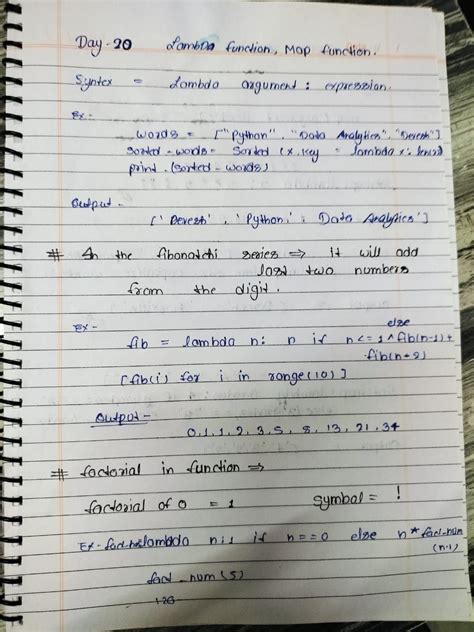 Day-20 Lambda function, Map function.
Syntex = Lambda argument : expression.
Ex:
words = ["Python", "Data Analytics", "Devesh"]
sorted-words = Sorted (x, key = lambda x: len(x))
print (sorted-words)
Output -
['Devesh', 'Python', 'Data Analytics']
# In the fibonatchi series ⇒ it will add
last two numbers
from the digit.
Ex -
fib = lambda n: n if n <= 1 else fib(n-1) +
fib(n-2)
[fib(i) for i in range(10)]
Output -
0, 1, 1, 2, 3, 5, 8, 13, 21, 34
# factorial in function ⇒
factorial of 0 = 1 Symbol = !
Ex - lambda n: 1 if n == 0 else n * fact-num
(n-1)
fact_num(5)
120